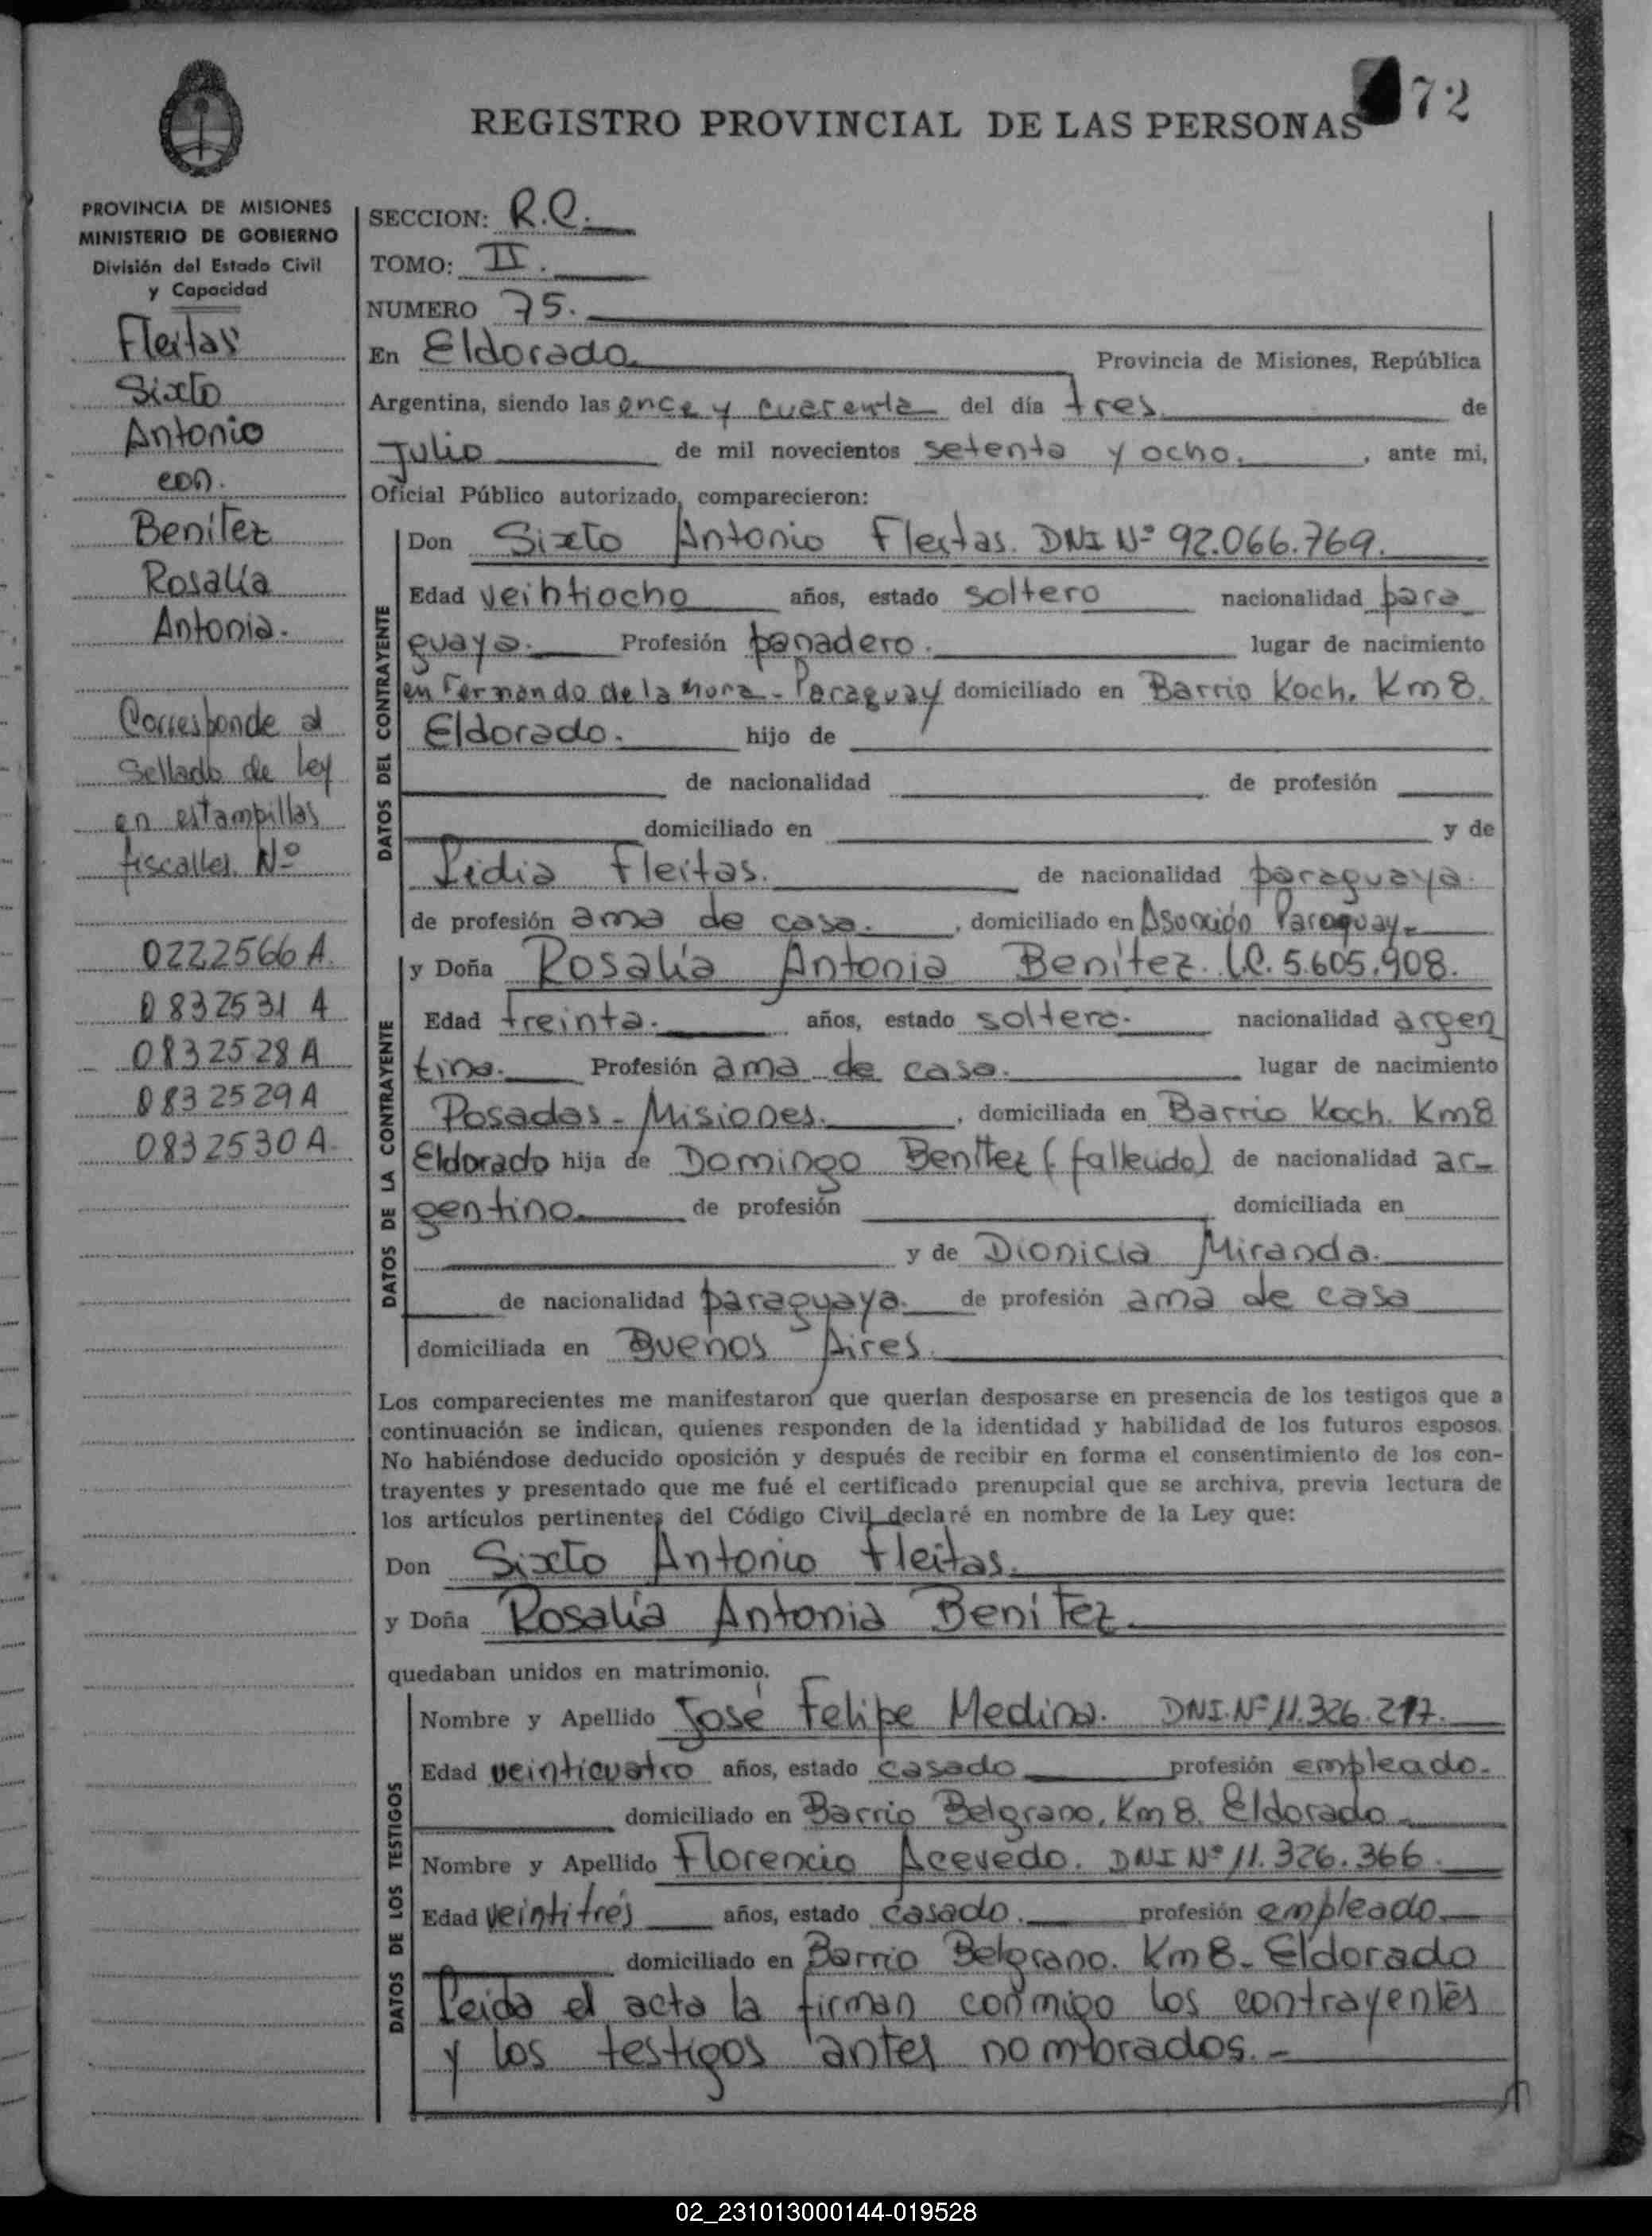 72
REGISTRO PROVINCIAL DE LAS PERSONAS
PROVINCIA DE MISIONES
MINISTERIO DE GOBIERNO
División del Estado Civil
y Capacidad
Fleitas
Sixto
Antonio
con.
Benitez
Rosalía
Antonia.
Corresponde al
Sellado de ley
en estampillas
fiscalles. Nº
0222566 A.
0832531 A
0832528 A
0832529 A
0832530 A.
SECCION: R.C.
TOMO: II.
NUMERO 75.
En Eldorado Provincia de Misiones, República
Argentina, siendo las once y cuarenta del día tres de
Julio de mil novecientos setenta y ocho. , ante mi,
Oficial Público autorizado, comparecieron:
DATOS DEL CONTRAYENTE
Don Sixto Antonio Fleitas. DNI Nº 92.066.769.
Edad veintiocho años, estado soltero nacionalidad para
guaya. Profesión panadero. lugar de nacimiento
en Fernando de la Mora - Paraguay domiciliado en Barrio Koch. Km 8.
Eldorado. hijo de
de nacionalidad de profesión
domiciliado en y de
Lidia Fleitas. de nacionalidad paraguaya.
de profesión ama de casa. , domiciliado en Asunción Paraguay.
DATOS DE LA CONTRAYENTE
y Doña Rosalía Antonia Benítez. L.C. 5.605.908.
Edad treinta. años, estado soltera. nacionalidad argen
tina. Profesión ama de casa. lugar de nacimiento
Posadas - Misiones. , domiciliada en Barrio Koch. Km 8
Eldorado hija de Domingo Benítez (fallecido) de nacionalidad ar-
gentino. de profesión domiciliada en
y de Dionicia Miranda.
de nacionalidad paraguaya. de profesión ama de casa
domiciliada en Buenos Aires.
Los comparecientes me manifestaron que querían desposarse en presencia de los testigos que a
continuación se indican, quienes responden de la identidad y habilidad de los futuros esposos.
No habiéndose deducido oposición y después de recibir en forma el consentimiento de los con-
trayentes y presentado que me fué el certificado prenupcial que se archiva, previa lectura de
los artículos pertinentes del Código Civil declaré en nombre de la Ley que:
Don Sixto Antonio Fleitas.
y Doña Rosalía Antonia Benitez.
quedaban unidos en matrimonio.
DATOS DE LOS TESTIGOS
Nombre y Apellido José Felipe Medina. DNI. Nº 11.326.217.
Edad veinticuatro años, estado casado profesión empleado.
domiciliado en Barrio Belgrano, Km 8. Eldorado
Nombre y Apellido Florencio Acevedo. DNI Nº 11.326.366.
Edad veintitrés años, estado casado. profesión empleado.
domiciliado en Barrio Belgrano. Km 8. Eldorado
Leida el acta la firman conmigo los contrayentes
y los testigos antes nombrados. -
02_231013000144-019528